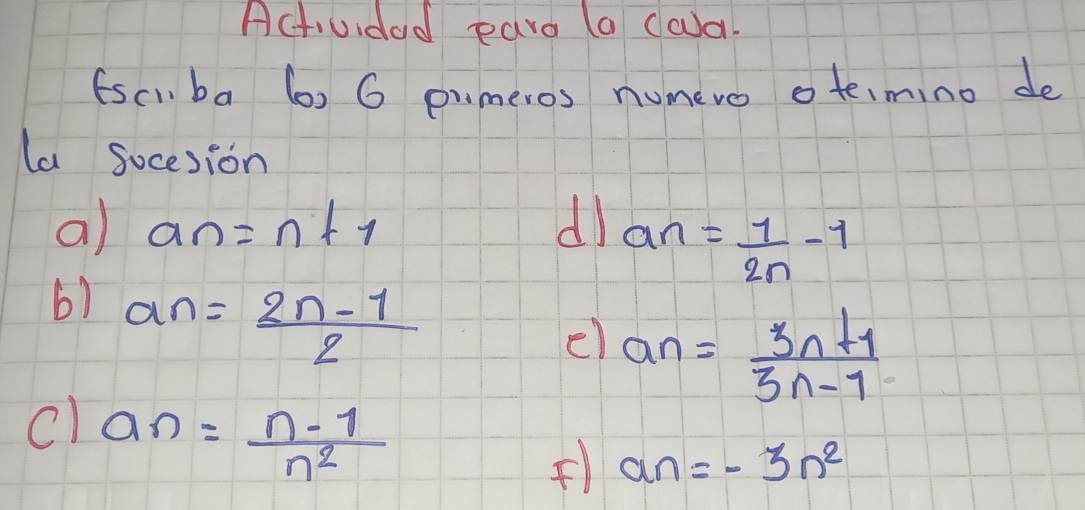 Actividad para la casa.
Escriba los 6 primeros numero o termino de
la sucesión
a) an = n + 1
b) an = 2n - 1 / 2
c) an = n - 1 / n²
d) an = 1 / 2n - 1
e) an = 3n + 1 / 3n - 1
f) an = - 3n²